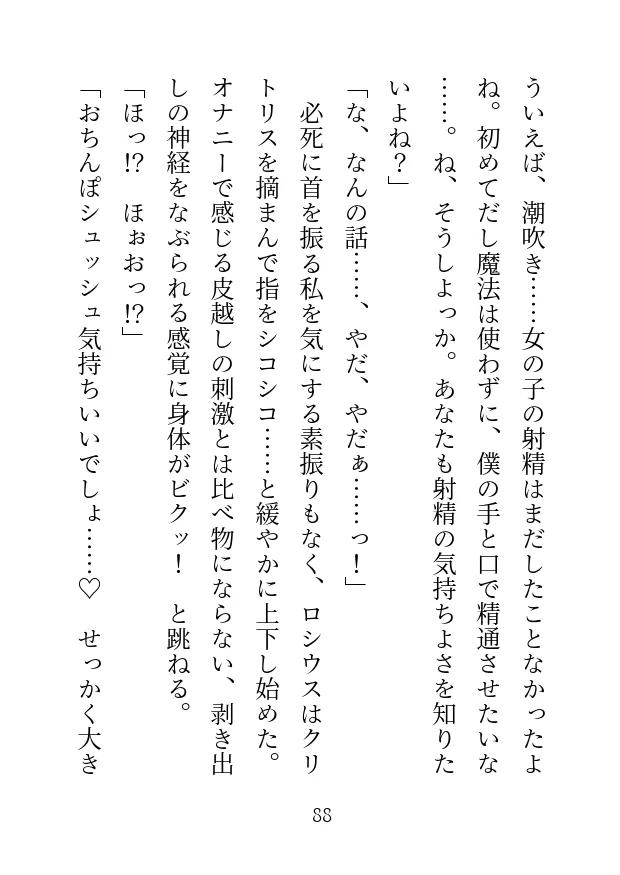 ういえば、潮吹き……女の子の射精はまだしたことなかったよ
ね。初めてだし魔法は使わずに、僕の手と口で精通させたいな
……。ね、そうしよっか。あなたも射精の気持ちよさを知りた
いよね？」
「な、なんの話……、やだ、やだぁ……っ！」
　必死に首を振る私を気にする素振りもなく、ロシウスはクリ
トリスを摘まんで指をシコシコ……と緩やかに上下し始めた。
オナニーで感じる皮越しの刺激とは比べ物にならない、剥き出
しの神経をなぶられる感覚に身体がビクッ！　と跳ねる。
「ほっ!?　ほぉおっ!?」
「おちんぽシュッシュ気持ちいいでしょ……♡　せっかく大き
88